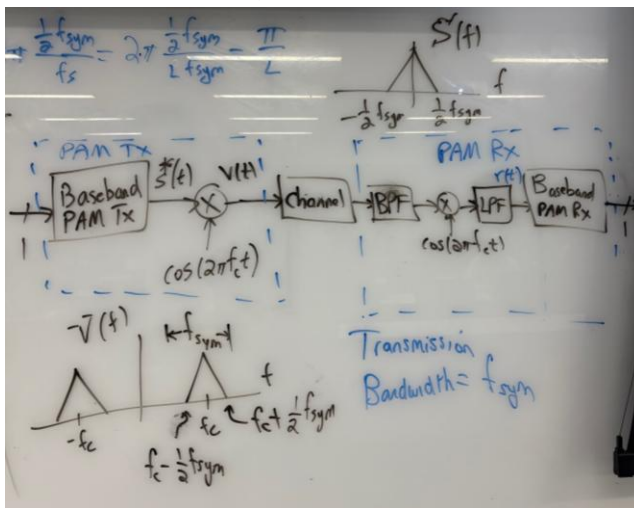 ½fsym/fs = 2π ½fsym/L fsym = π/L
S(f)
f
-½fsym ½fsym
PAM Tx
PAM Rx
s*(t) v(t)
r(t)
Baseband PAM Tx
X
Channel
BPF
X
LPF
Baseband PAM Rx
1
1
cos(2πfct)
cos(2πfct)
V(f)
fsym
f
-fc
fc
fc+½fsym
fc-½fsym
Transmission
Bandwidth = fsym